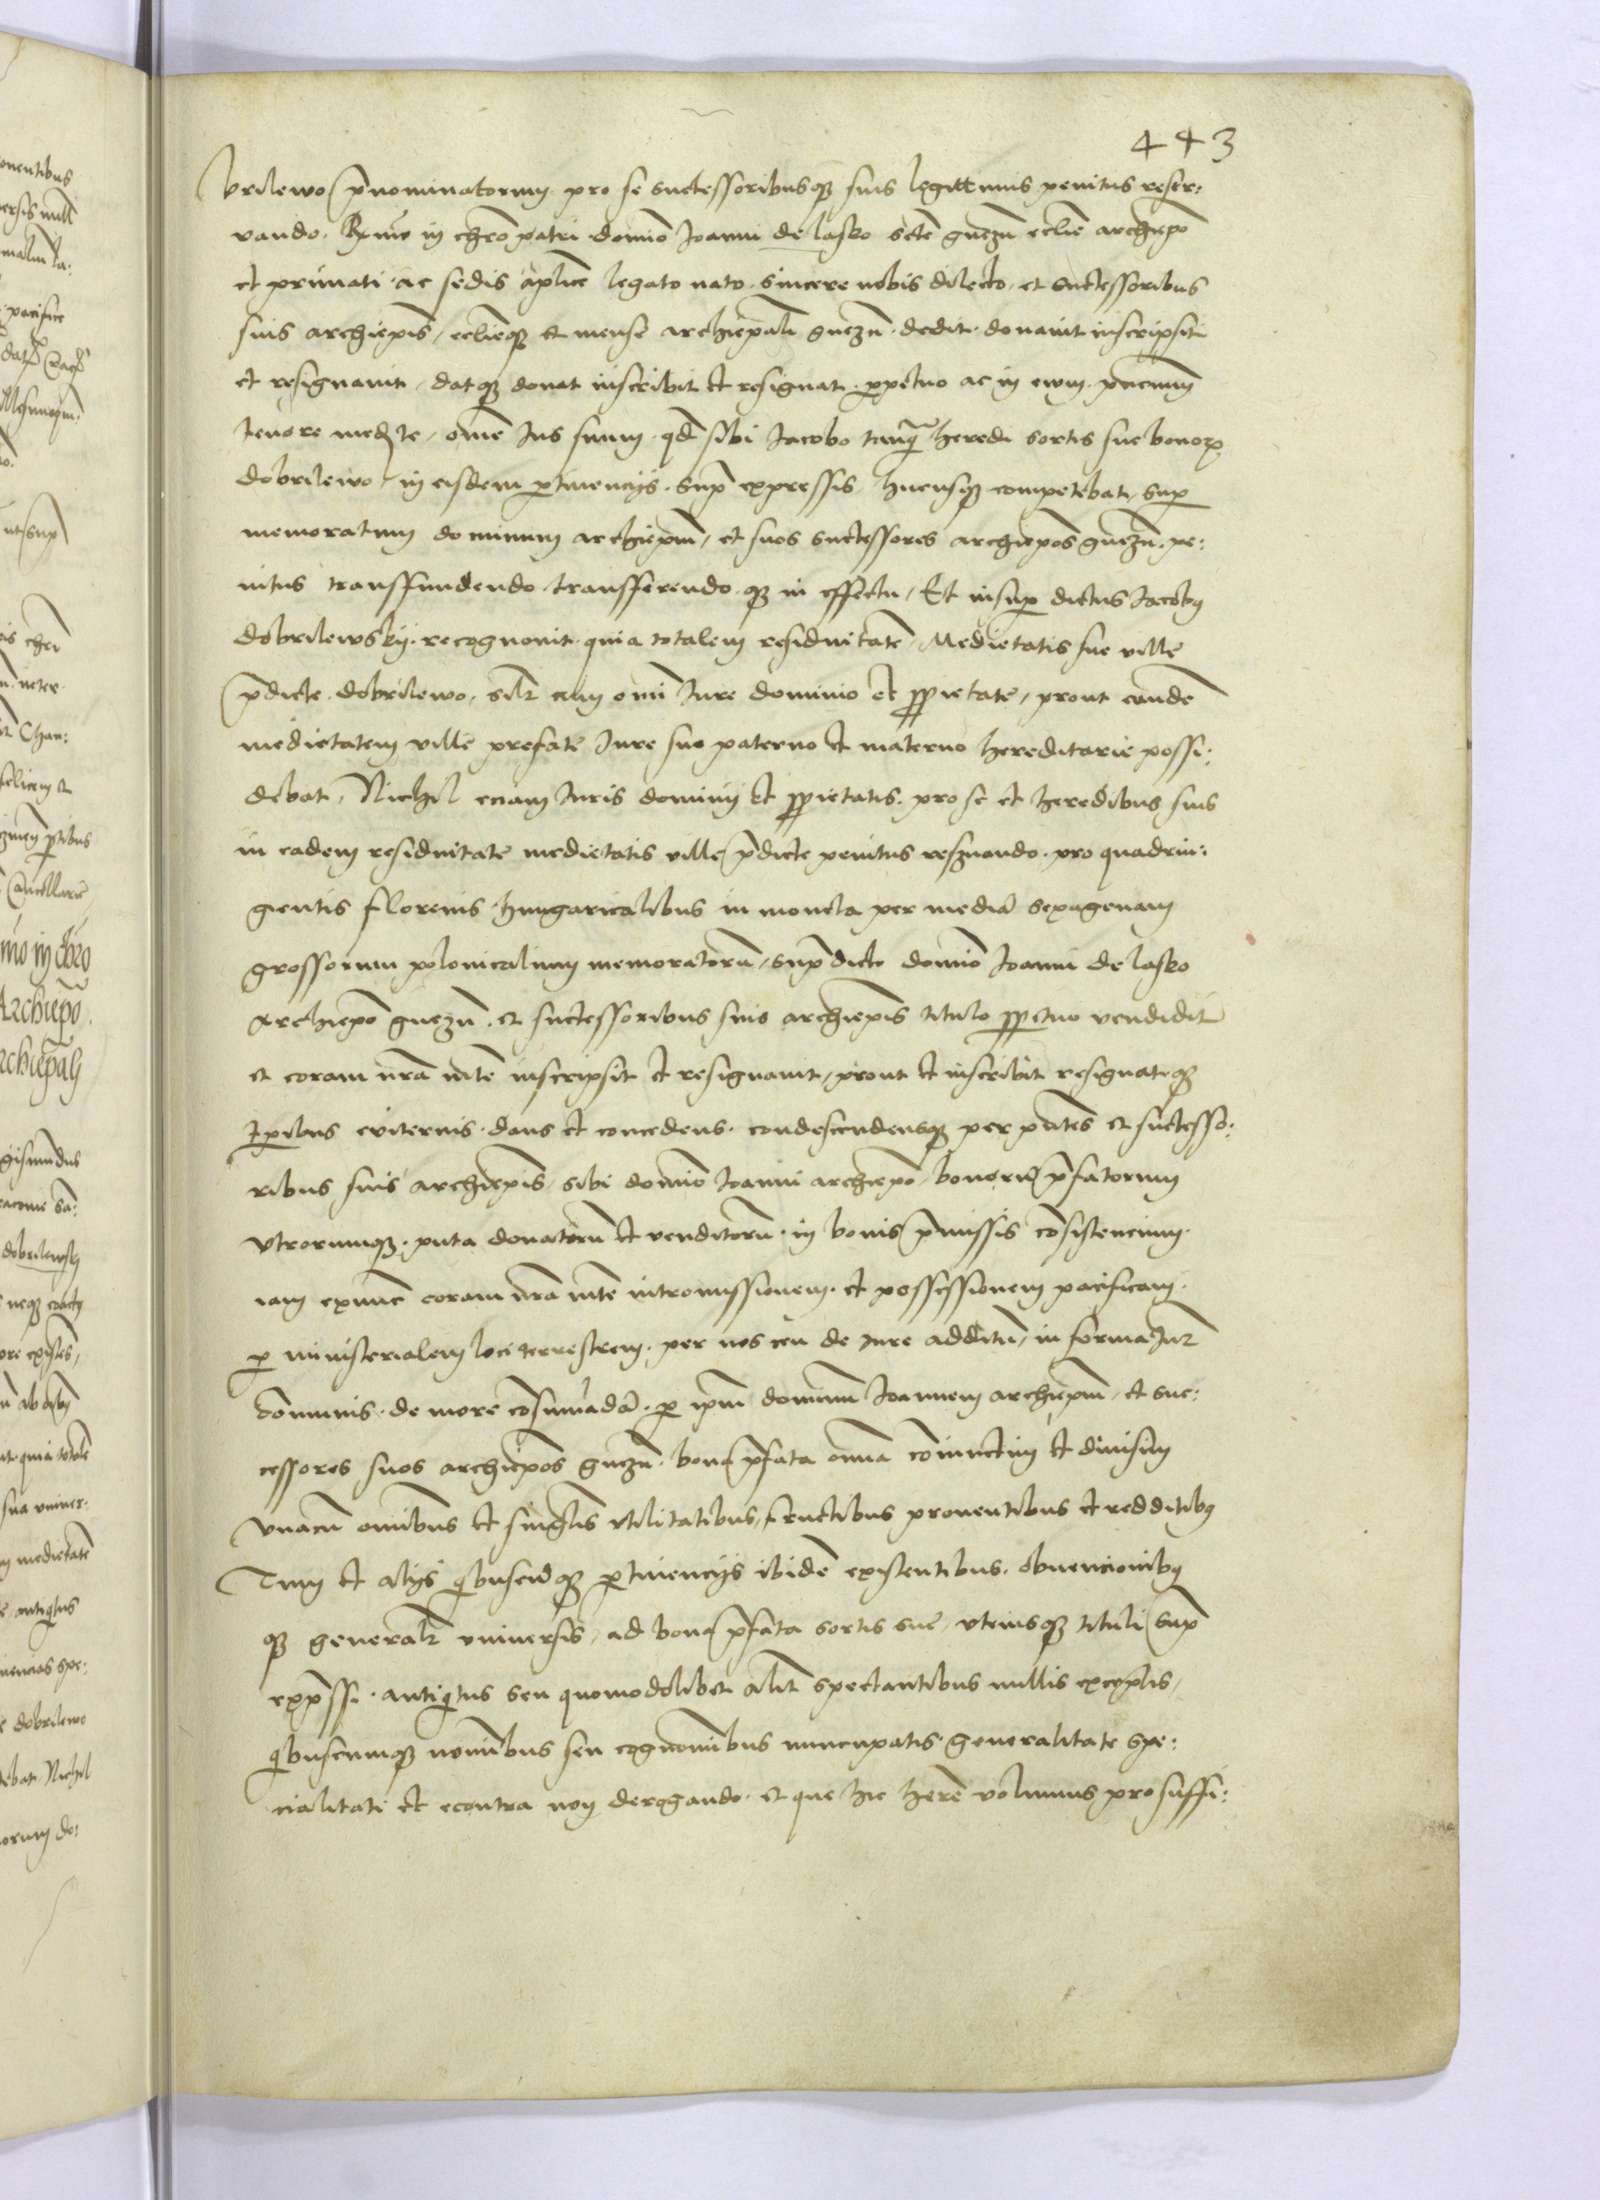 443
brilewo pnominatorum pro se successoribusq suis legittimis penitus reser:
vando. Rmo in chro patri domino Joanni de lasko scte gnezn eclie archiepo
et primati ac sedis aplice legato nato sincere nobis dilecto, et successoribus
suis archiepis, eclieq et mense archiepali gnezn dedit donavit inscripsit
et resignavit, datq donat inscribit et resignat perpetuo ac in ewm pncium
tenore mediate, omne Jus suum qd sibi Jacobo tanq heredi sortis sue bonorum
dobrilewo in eisdem pertinencijs supra expressis hucusq competebat, super
memoratum dominum archiepm, et suos successores archiepos gnezn pe:
nitus transfundendo transferendo q in effectu, Et insuper dictus Jacobus
dobrilewskij recognovit quia totalem residuitate Medietatis sue ville
pdicte dobrilewo, silr cum omni Jure dominio et prpietate, prout eande
medietatem ville prefate Jure suo paterno et materno hereditarie possi:
debat, Nichil eciam Juris dominij et prpietatis pro se et heredibus suis
in eadem residuitate medietatis ville pdicte penitus reservando pro quadrin:
gentis florenis hungaricalibus in moneta per media sexagenam
grossorum polonicalium memoratoru, supradicto domino Joanni de lasko
Archiepo gnezn et successoribus suis archiepis titulo perpetuo vendidit
et coram nra mte inscripsit et resignavit, prout et inscribit resignatq
Tpribus eviternis dans et concedens condescendensq per pntes et successo:
ribus suis archiepis, sibi domino Joanni archiepo bonoru pfatorum
Vtrorumq puta donatoru et venditoru in bonis pmissis consistencium
iam exnunc coram nra mte intromissionem et possessionem pacificam
per ministerialem loci terrestrem per nos seu de iure additu, in forma Jur
communis de more consumada per ipm dominum Joannem archiepm et suc:
cessores suos archiepos gnezn bona pfata omnia coniunctim et divisim
Vnacu omnibus et singulis vtilitatibus, fructibus proventibus et redditibus
Tum et alijs qbuscuq pertinencijs ibide existentibus obvencionibus
q generalr vniversis, ad bona pfata sortis sue vtriusq tituli supra
expssi antiqtus seu quomodolibet alit spectantibus nullis exceptis,
qbuscumq nominibus seu cognominibus nuncupatis generalitate spe:
cialitati et econtra non derogando et que hic here volumus pro suffi: